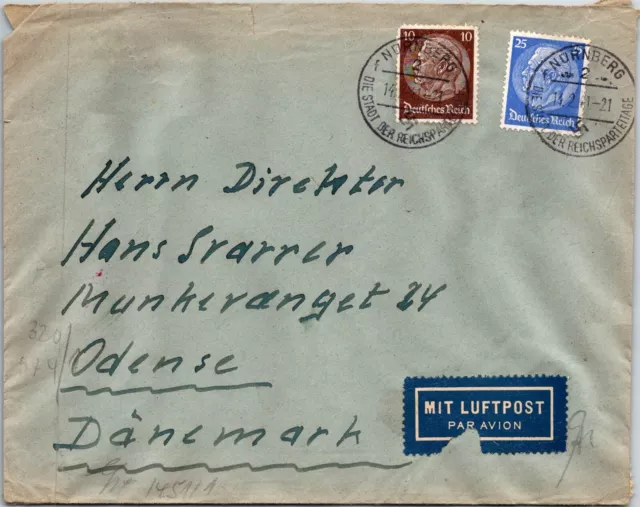 10 10
Deutsches Reich
25
Deutsches Reich
NÜRNBERG
2
14
DIE STADT DER REICHSPARTEITAGE
NÜRNBERG
2
14.2.41-21
DER REICHSPARTEITAGE
Herrn Direktor
Hans Svarrer
Munkevænget 24
Odense
Dänemark
MIT LUFTPOST
PAR AVION